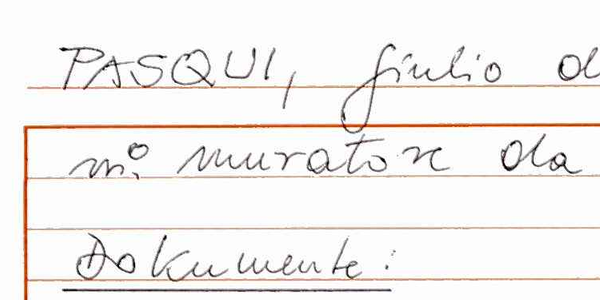 PASQUI, Giulio d
m.º muratore da
Dokumente: